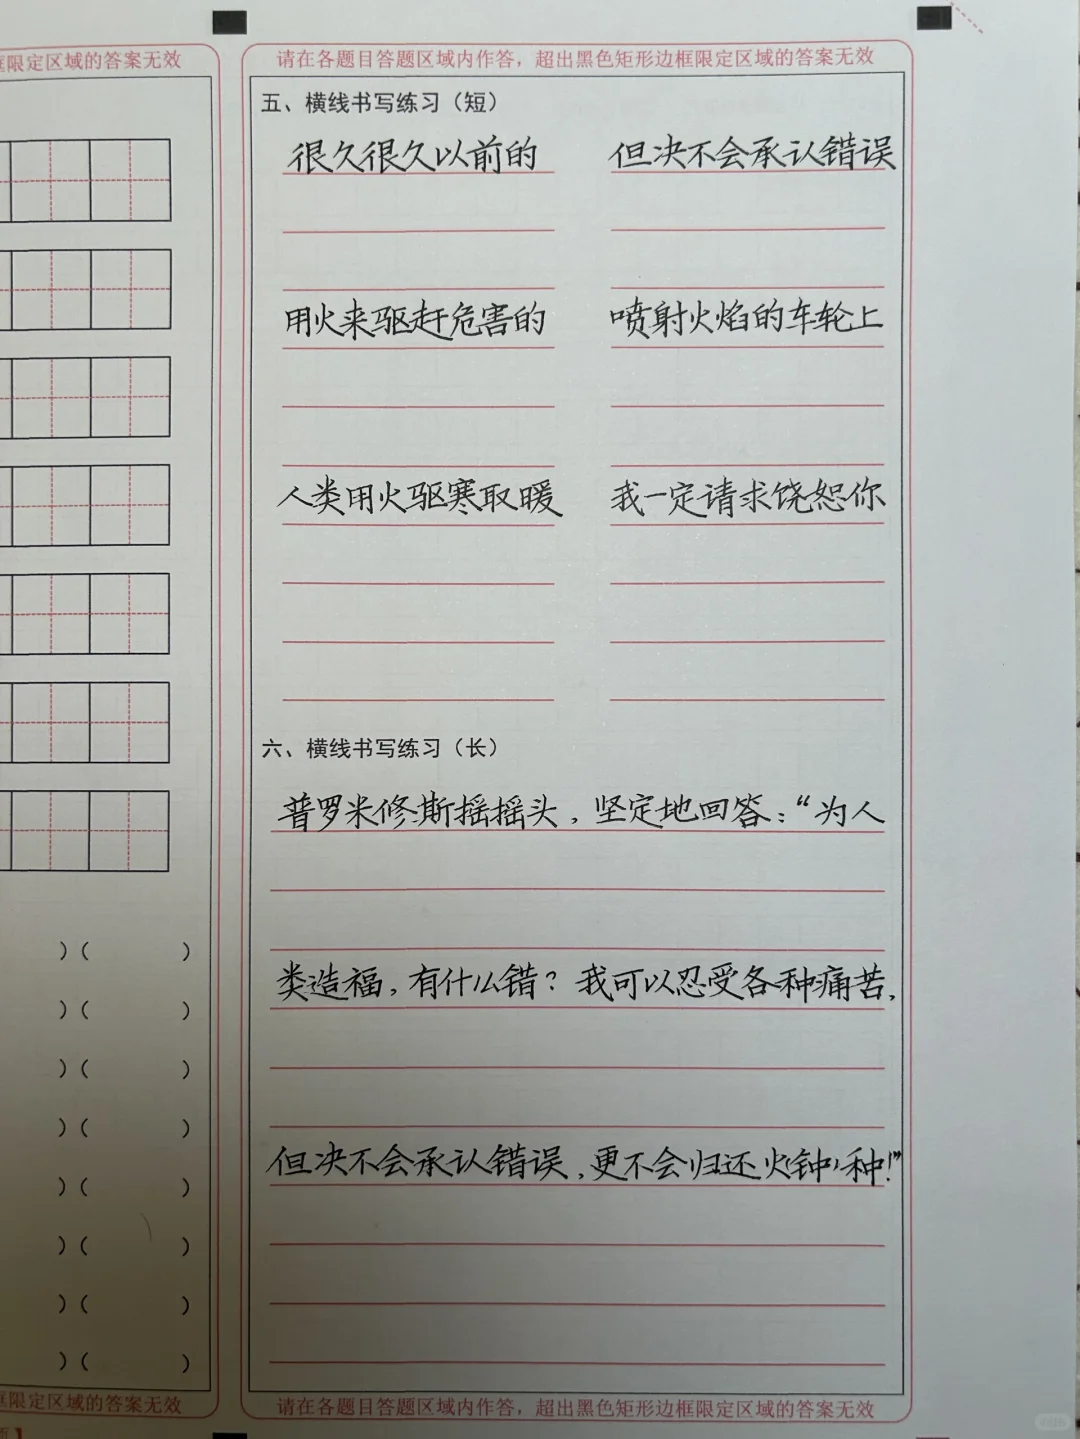 框限定区域的答案无效
请在各题目答题区域内作答，超出黑色矩形边框限定区域的答案无效
五、横线书写练习（短）
很久很久以前的 但决不会承认错误
用火来驱赶危害的 喷射火焰的车轮上
人类用火驱寒取暖 我一定请求饶恕你
六、横线书写练习（长）
普罗米修斯摇摇头，坚定地回答：“为人
类造福，有什么错？我可以忍受各种痛苦，
但决不会承认错误，更不会归还火钟种！”
）（ ）
）（ ）
）（ ）
）（ ）
）（ ）
）（ ）
）（ ）
）（ ）
框限定区域的答案无效
请在各题目答题区域内作答，超出黑色矩形边框限定区域的答案无效